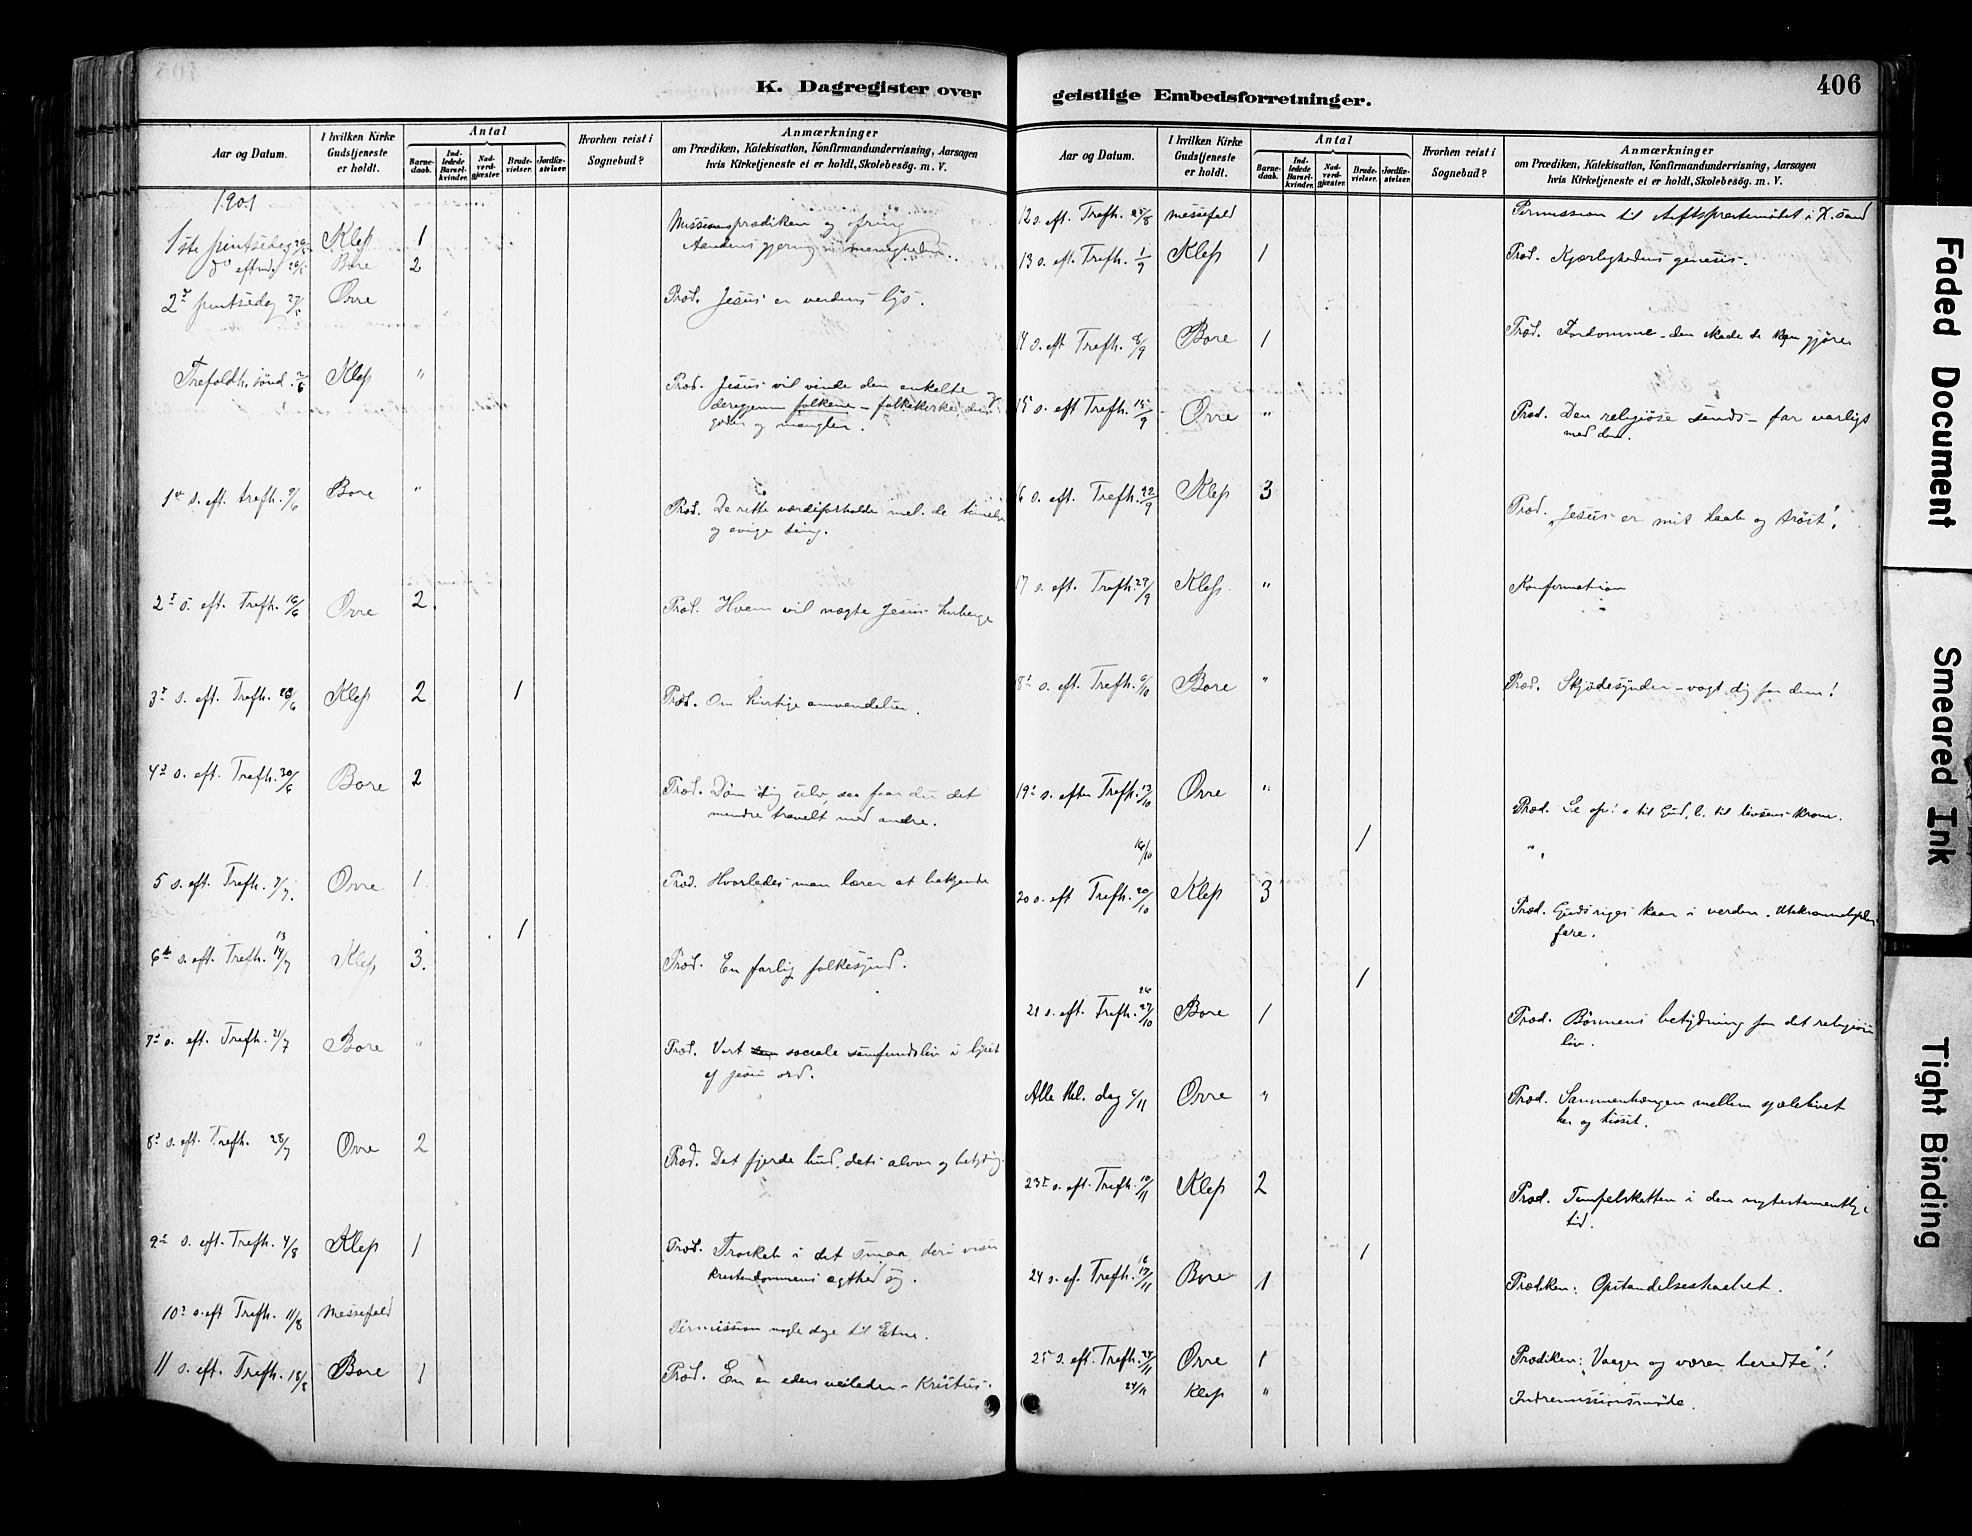 K. Dagregister over
Aar og Datum.
I hvilken Kirke Gudstjeneste er holdt.
Antal
Barnedaab.
Indledede Barselkvinder.
Nadverdgjæster.
Brudevielser.
Jordfæstelser.
Hvorhen reist i Sognebud?
Anmærkninger
om Prædiken, Katekisation, Konfirmandundervisning, Aarsagen
hvis Kirketjeneste ei er holdt, Skolebesøg. m. V.
1901
1ste pintsedag 26/5 Klep 1 Missionsprædiken og ofring
do eftmd. 26/5 Bore 2 Aandens gjerning i menigheden.
2den pintsedag 27/5 Orre Præd. Jesus er verdens lys.
Trefoldh. sønd. 2/6 Klep " Præd. Jesus vil vinde den enkelte
derigjennem folkene - folkekirke, dens
goder og mangler.
1e s. eft. trefh. 9/6 Bore " Præd. De rette værdiforholde mel. de timelige
og evige ting.
2n s. eft. Trefh. 16/6 Orre 2. Præd. Hvem vil nægte Jesus herberge
3e s. eft. Trefh. 23/6 Klep 2 1 Præd. Om hurtige omvendelser.
4e s. eft. Trefh. 30/6 Bore 2 Præd. Døm dig selv, saa faar du det
mindre travelt med andre.
5 s. eft. Trefh. 7/7. Orre 1 Præd. Hvorledes man lærer at bekjende
13 1
6te s. eft. Trefh. 14/7 Klep 3. Præd. En farlig folkesynd.
7e s. eft. Trefh. 21/7 Bore " Præd. Vort sociale samfundsliv i lyset
af Jesu ord.
8e s. eft. Trefh. 28/7 Orre 2 Præd. Det fjerde bud, dets alvor og betydng.
9e s. eft. Trefh. 4/8 Klep 1 Præd. Troskab i det smaa, deri viser
kristendommens ægthed sig.
10e s. eft Trefh. 11/8 Messefald Permission nogle dage til Etne.
11 s. eft. Trefh. 18/8 Bore 1 Præd. En er eders veileder - Kristus.
geistlige Embedsforretninger.
406
Aar og Datum.
I hvilken Kirke Gudstjeneste er holdt.
Antal
Barnedaab.
Indledede Barselkvinder.
Nadverdgjæster.
Brudevielser.
Jordfæstelser.
Hvorhen reist i Sognebud?
Anmærkninger
om Prædiken, Katekisation, Konfirmandundervisning, Aarsagen
hvis Kirketjeneste ei er holdt, Skolebesøg. m. V.
12 s. eft. Trefh. 25/8 messefald Permission til stiftspræstemødet i X.sand
13 s. eft. Trefh. 1/9 Klep 1 Præd. Kjærlighedens genesis.
14 s. eft Trefh. 8/9 Bore 1 Præd. Fordomme - den skade de kan gjøre
15 s. eft Trefh. 15/9 Orre " Præd. Den religiøse sands - far varligt
med den.
16 s. eft. Trefh. 22/9 Klep 3 Præd. "Jesus er mit haab og trøst".
17 s. eft. Trefh. 29/9 Klep. " Konfirmation
18e s. eft. Trefh. 6/10 Bore " Præd. Skjødesynder - vogt dig for dem!
19e s. efter Trefh. 13/10 Orre " Præd. Se op! a til Gud, b. til livsens krone.
16/10 1 "
20 s. eft Trefh. 20/10 Klep 3 Præd. Guds riges kaar i verden.
fare.
26 1
21 s. eft. Trefh. 27/10 Bore 1 Præd. Børnenes betydning for det religiøse
liv.
Alle Hel. dag /11 Orre " Præd. Sammenhængen mellem sjælelivet
her og hisset.
23e s. eft. Trefh. 10/11 Klep 2 Præd. Tempelskatten i den nytestamentlige
tid.
16 1
24 s. ef. Trefh. 17/11 Bore 1 Prædiken: Opstandelseshaabet.
25 s. eft. Trefh. 24/11 Orre 1 Prædiken: "Vaager og værer beredte"!
24/11 Klep " Indremissionsmøde.
Faded Document
Smeared Ink
Tight Binding